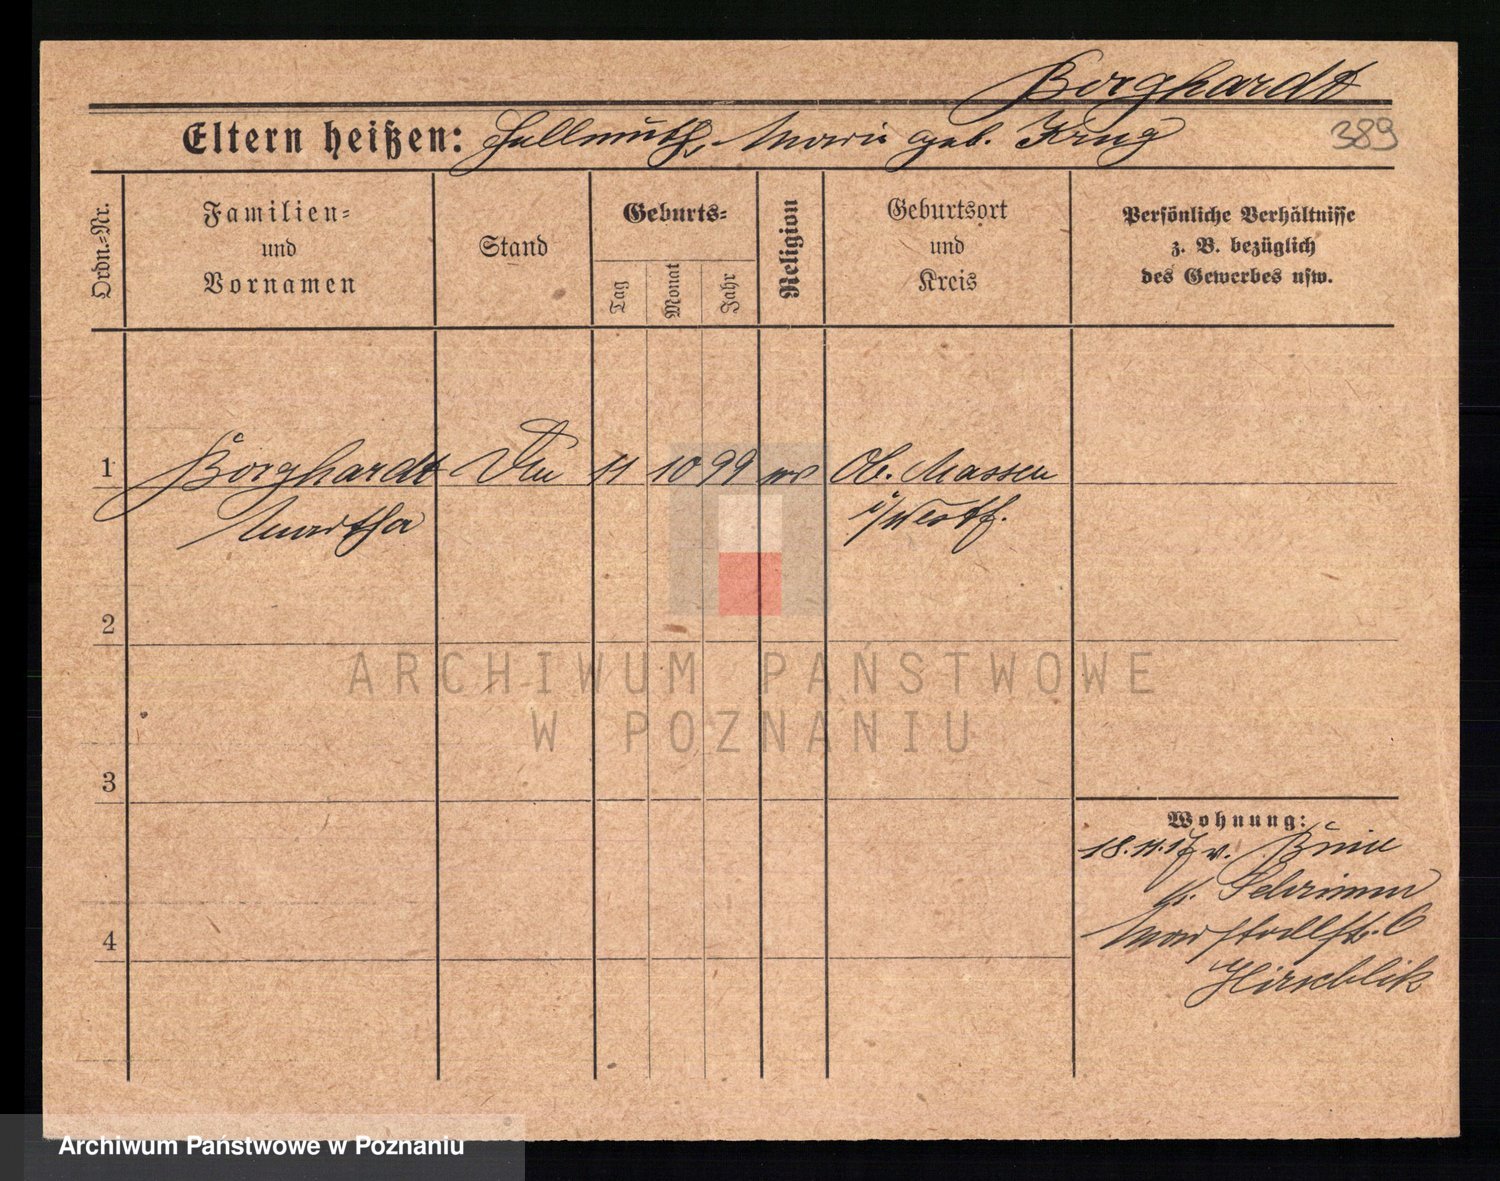 Borghardt
Eltern heißen: Hellmuth, Marie geb. Krug
389
Ordn.-Nr.
Familien-
und
Vornamen
Stand
Geburts-
Tag
Monat
Jahr
Religion
Geburtsort
und
Kreis
Persönliche Verhältnisse
z. B. bezüglich
des Gewerbes usw.
1 Borghardt 11 10 99 Ob. Massen
Martha i/Westf.
2
ARCHIWUM PAŃSTWOWE
W POZNANIU
3
Wohnung:
18.11.17 v.
Schrimm
Marstallstr. 6
Hirschlik
4
Archiwum Państwowe w Poznaniu